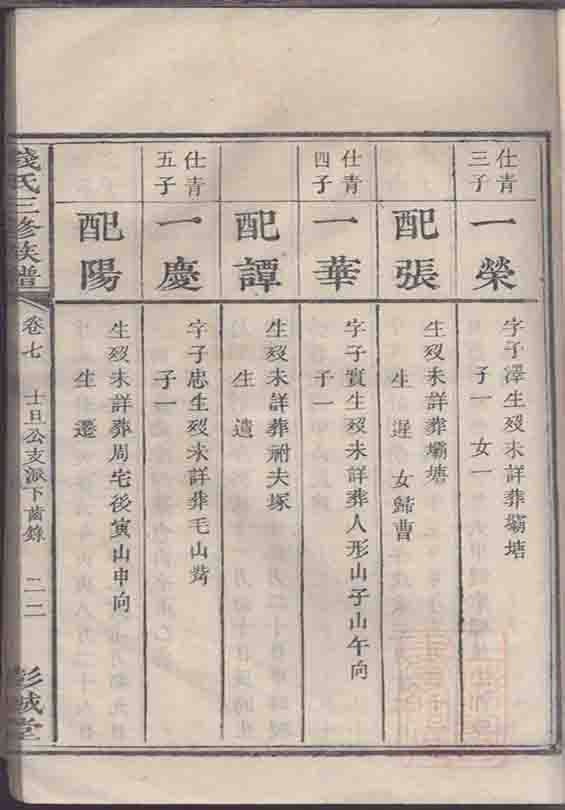 仕青三子
一榮
字子澤生歿未詳葬壩塘
子一 女一
配張
生歿未詳葬壩塘
生 遲 女歸曹
仕青四子
一華
字子實生歿未詳葬人形山子山午向
子一
配譚
生歿未詳葬祔夫塚
生 遣
仕青五子
一慶
字子忠生歿未詳葬毛山嵴
子一
配陽
生歿未詳葬周宅後寅山申向
生 遷
錢氏三修族譜
卷七 士旦公支派下齒錄 二二
彭城堂